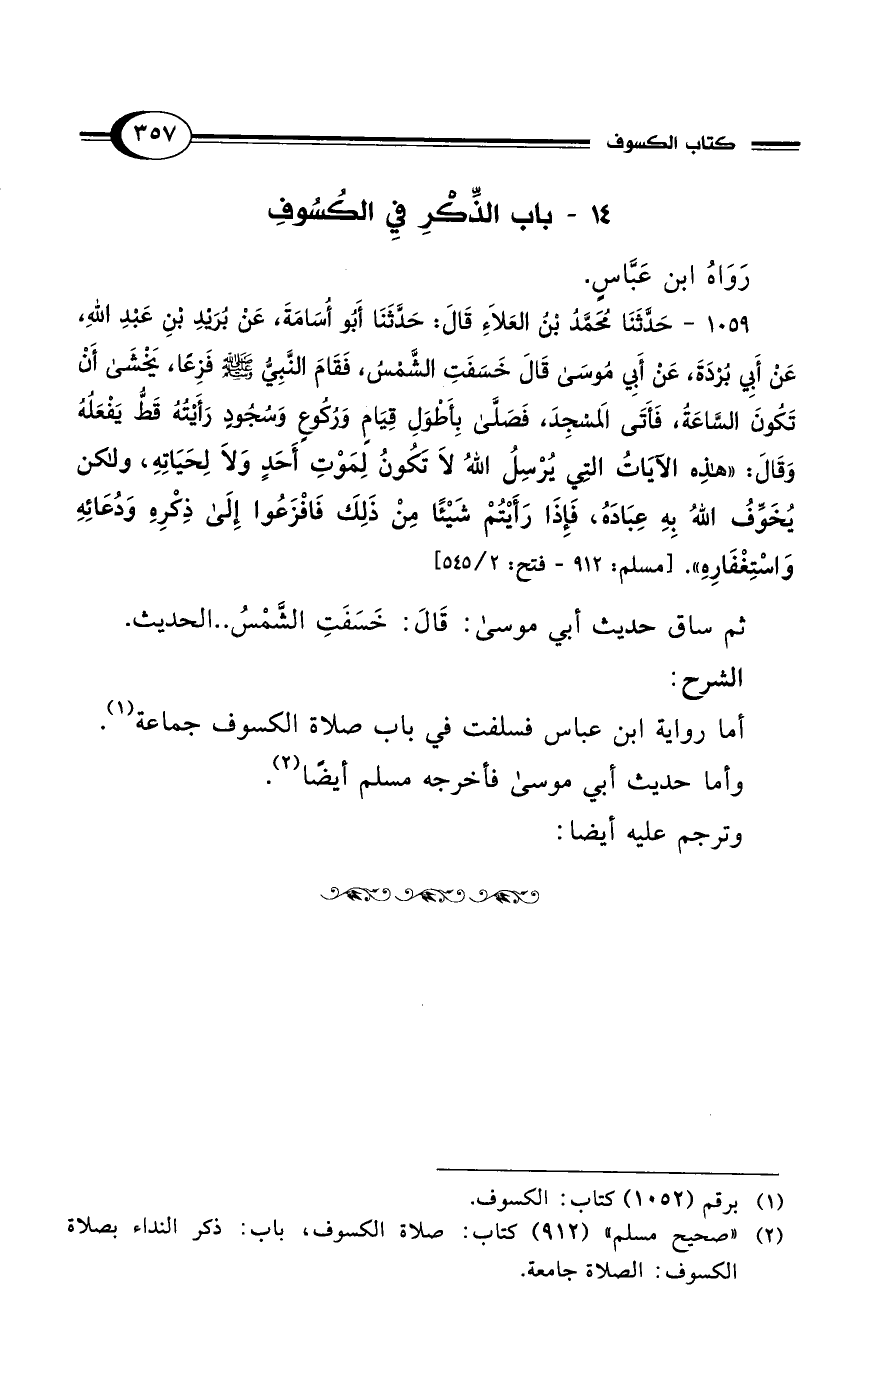 كتاب الكسوف ٣٥٧
١٤ - باب الذِّكْرِ فِي الكُسُوفِ
رَوَاهُ ابن عَبَّاسٍ.
١٠٥٩ - حَدَّثَنَا مُحَمَّدُ بْنُ العَلاَءِ قَالَ: حَدَّثَنَا أَبُو أُسَامَةَ، عَنْ بُرَيْدِ بْنِ عَبْدِ اللهِ،
عَنْ أَبِي بُرْدَةَ، عَنْ أَبِي مُوسَىٰ قَالَ خَسَفَتِ الشَّمْسُ، فَقَامَ النَّبِيُّ ﷺ فَزِعًا، يَخْشَىٰ أَنْ
تَكُونَ السَّاعَةُ، فَأَتَى المَسْجِدَ، فَصَلَّىٰ بِأَطْوَلِ قِيَامٍ وَرُكُوعٍ وَسُجُودٍ رَأَيْتُهُ قَطُّ يَفْعَلُهُ
وَقَالَ: «هٰذِه الآيَاتُ التِي يُرْسِلُ اللهُ لاَ تَكُونُ لِمَوْتِ أَحَدٍ وَلاَ لِحَيَاتِهِ، ولكن
يُخَوِّفُ اللهُ بِهِ عِبَادَهُ، فَإِذَا رَأَيْتُمْ شَيْئًا مِنْ ذَلِكَ فَافْزَعُوا إِلَىٰ ذِكْرِهِ وَدُعَائِهِ
وَاسْتِغْفَارِهِ». [مسلم: ٩١٢ - فتح: ٥٤٥/٢]
ثم ساق حديث أبي موسىٰ: قَالَ: خَسَفَتِ الشَّمْسُ..الحديث.
الشرح:
أما رواية ابن عباس فسلفت في باب صلاة الكسوف جماعة(١).
وأما حديث أبي موسىٰ فأخرجه مسلم أيضًا(٢).
وترجم عليه أيضا:
(١) برقم (١٠٥٢) كتاب: الكسوف.
(٢) «صحيح مسلم» (٩١٢) كتاب: صلاة الكسوف، باب: ذكر النداء بصلاة
الكسوف: الصلاة جامعة.